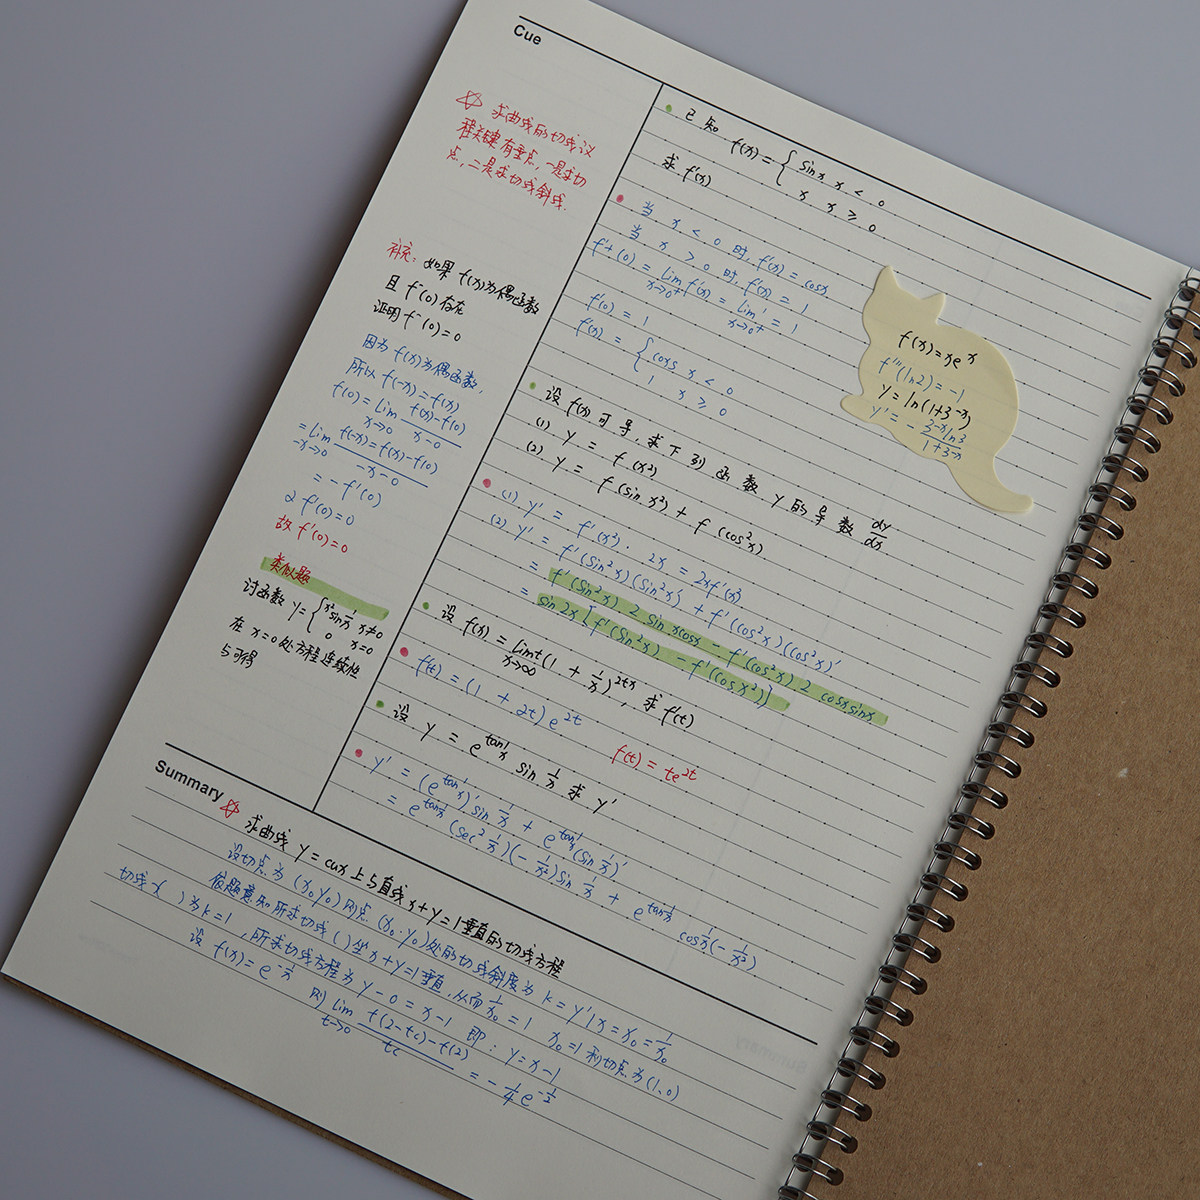 Cue
求曲线的切线议
程关键有重点,一是求切
点,二是求切线斜线.
补充: 如果 f(x)为偶函数
且 f'(0)存在
证明f'(0)=0
因为 f(x)为偶函数,
所以 f(-x)=f(x)
f(0)=lim x→0 f(x)-f(0)/x-0
=lim -x→0 f(-x)=f(x)-f(0)/-x-0
=-f'(0)
2f'(0)=0
故f'(0)=0
类似题
讨函数 y={x²sin1/x x≠0
0 x=0
在 x=0处方程连续性
与可得
已知 f(x)={sinx x<0
x x≥0
求 f'(x)
当 x<0 时, f'(x)=cosx
当 x>0 时, f'(x)=1
f'+(0)=lim x→0+ f'(x)=lim x→0+ 1=1
f'(0)=1
f'(x)={cosx x<0
1 x≥0
f(x)=xe^x
f'''(ln2)=-1
y=ln(1+3^-x)
y'=-3^-x ln3/1+3^-x
设 f(x)可导,求下列函数 y 的导数 dy/dx
(1) y=f(x²)
(2) y=f(sin x²)+f(cos²x)
(1) y'=f'(x²)·2x=2xf'(x²)
(2) y'=f'(sin²x)(sin²x)'+f'(cos²x)(cos²x)'
=f'(sin²x) 2 sin xcosx-f'(cos²x) 2 cosxsinx
=sin 2x[f'(sin²x)-f'(cosx²)]
设 f(x)=lim x→∞ t(1+1/x)^2tx, 求 f'(t)
f'(t)=(1+2t)e^2t
f(t)=te^2t
设 y=e^tan1/x sin 1/x 求 y'
y'=(e^tan1/x)'sin 1/x+e^tan1/x(sin 1/x)'
=e^tan1/x(sec² 1/x)(-1/x²)sin 1/x+e^tan1/x cos1/x(-1/x²)
Summary
求曲线 y=cux上与直线x+y=1垂直的切线方程
设切点为 (x₀y₀)则点 (x₀·y₀)处的切线斜度为 k=y'|x=x₀=1/x₀
依题意知所求切线( )坐x+y=1垂直,从而1/x₀=1 x₀=1 利切点为(1,0)
切线x( )为k=1,所求切线方程为 y-0=x-1 即: y=x-1
设 f(x)=e^-1/x 则 lim t→0 f(2-tc)-f(2)/tc=-1/4 e^-1/2